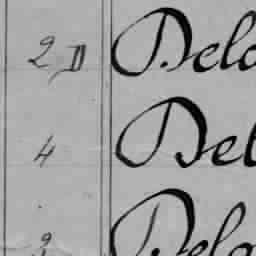 2 D Delo
4 Del
2 Dela